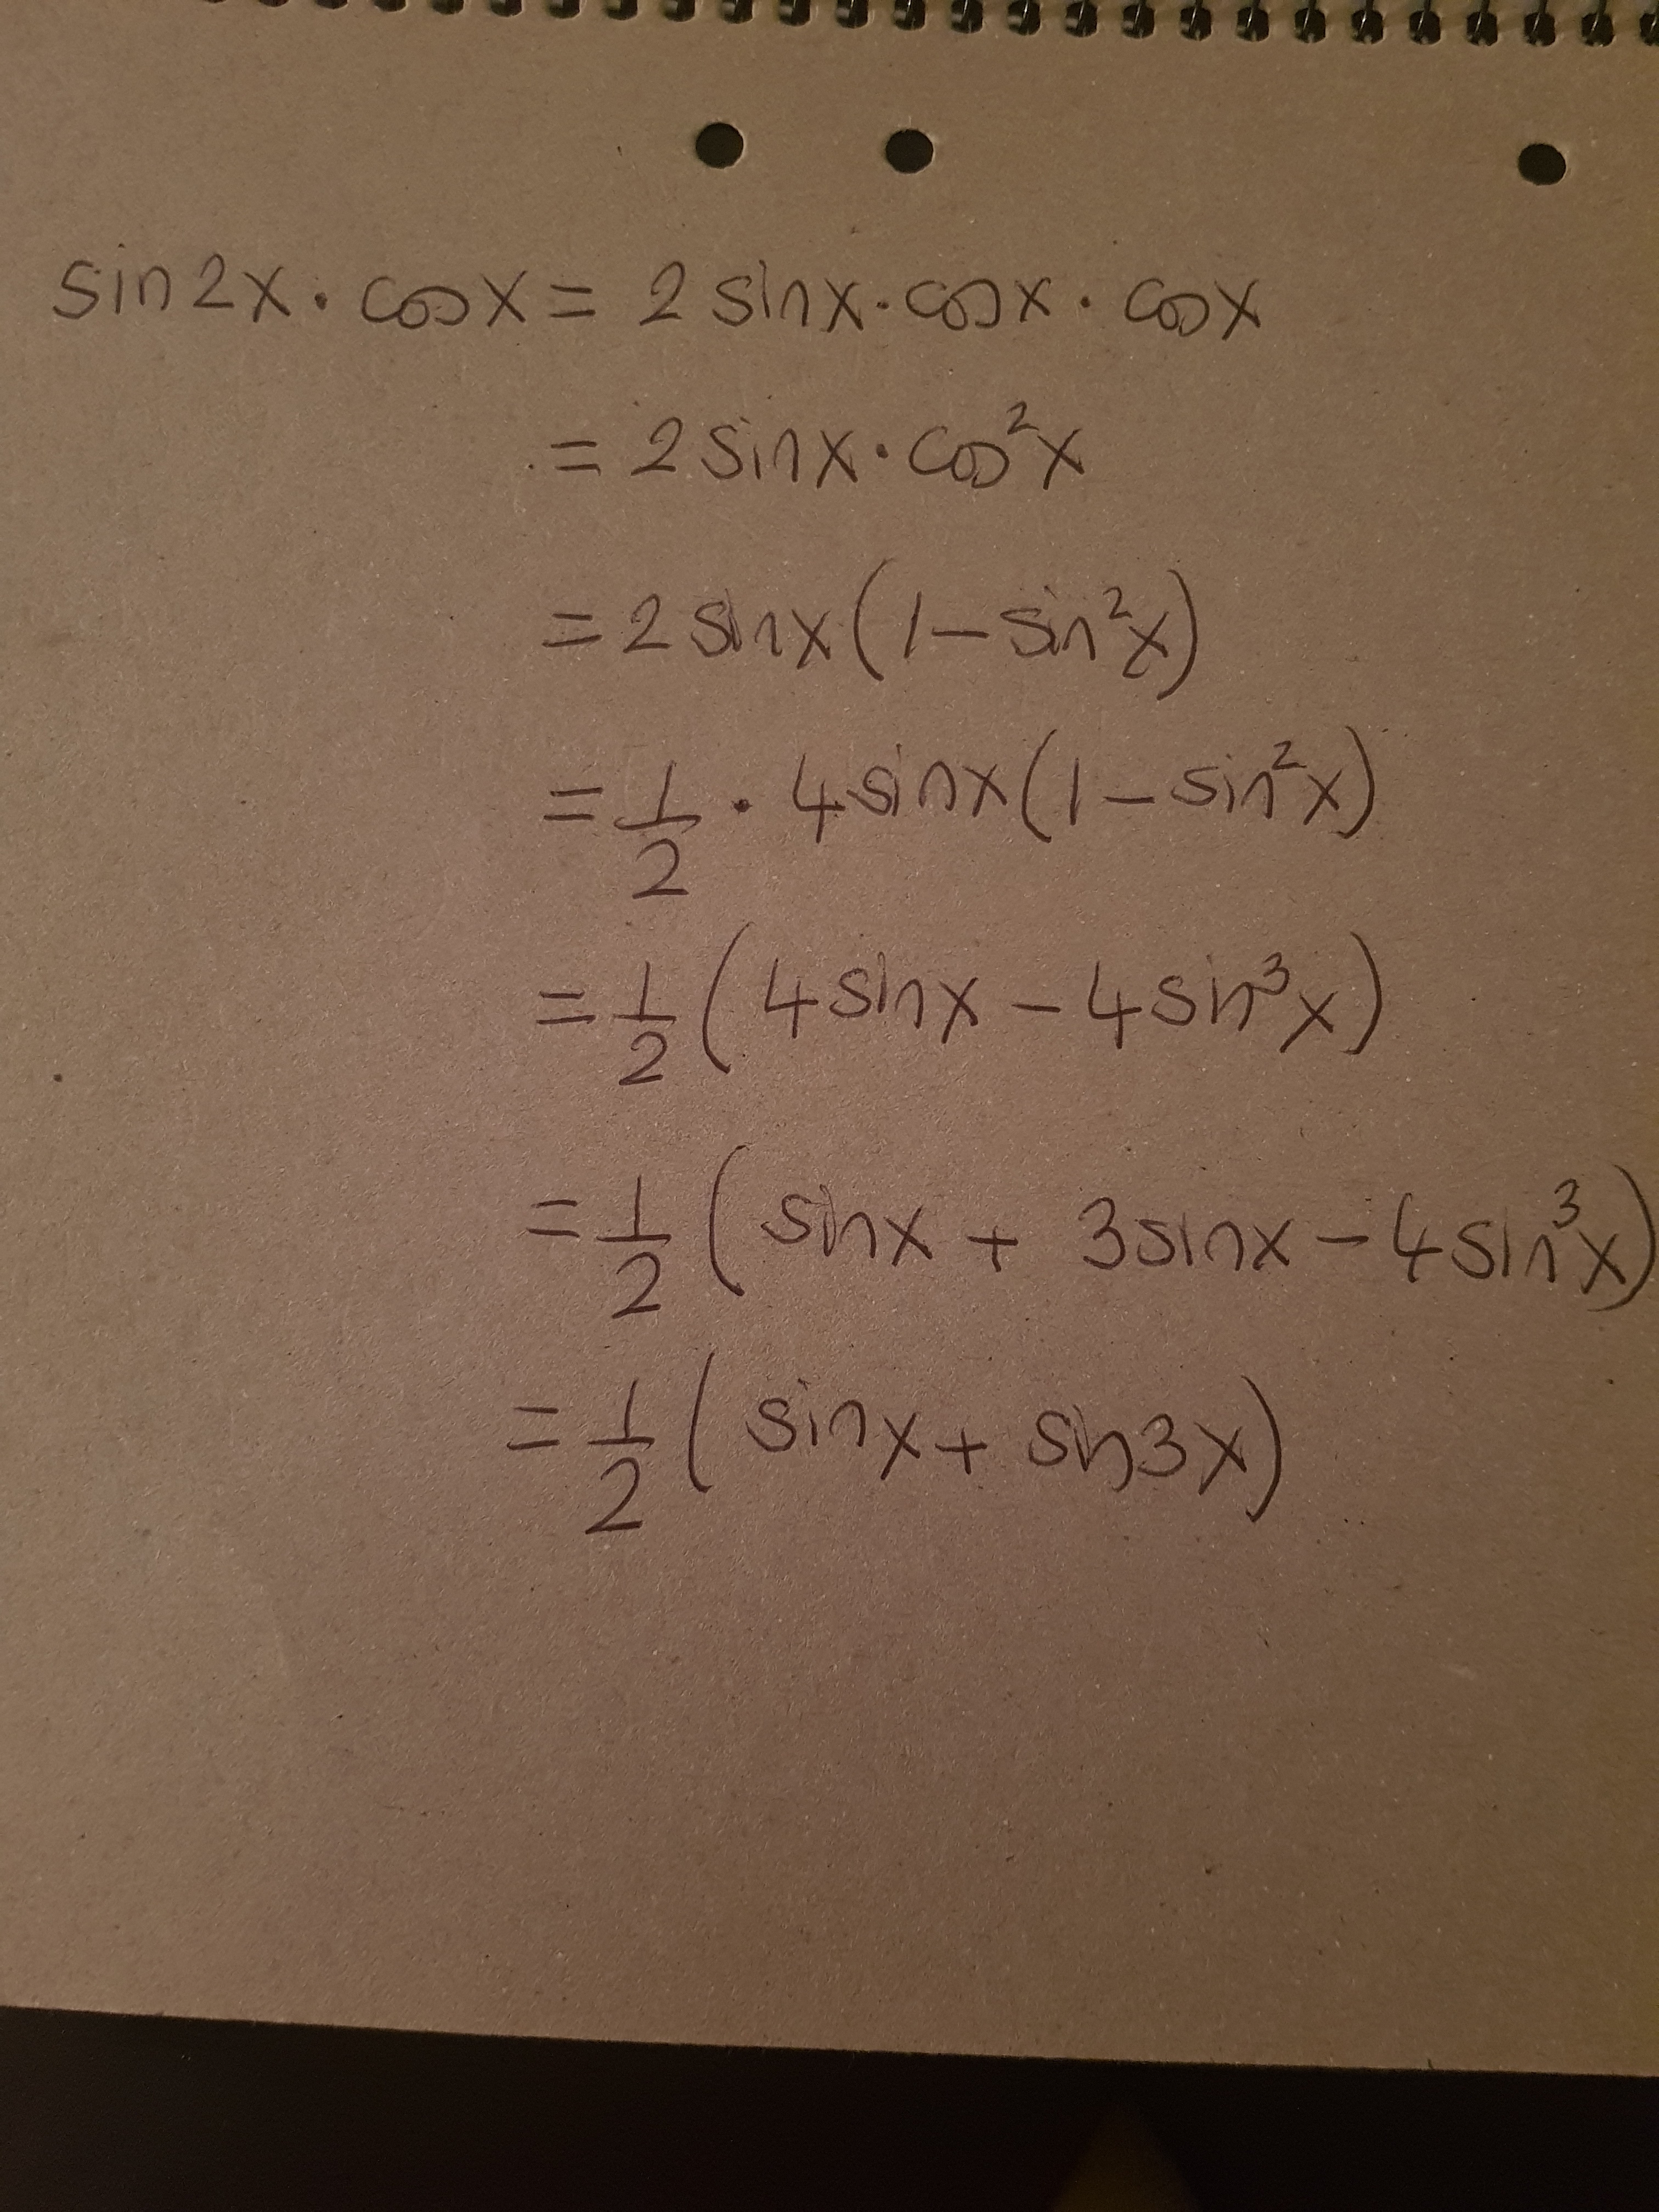 sin2x · cosx = 2 sinx · cosx · cosx
= 2 sinx · cos²x
= 2 sinx (1 − sin²x)
= 1/2 · 4 sinx (1 − sin²x)
= 1/2 (4 sinx − 4 sin³x)
= 1/2 (sinx + 3 sinx − 4 sin³x)
= 1/2 (sinx + sin3x)